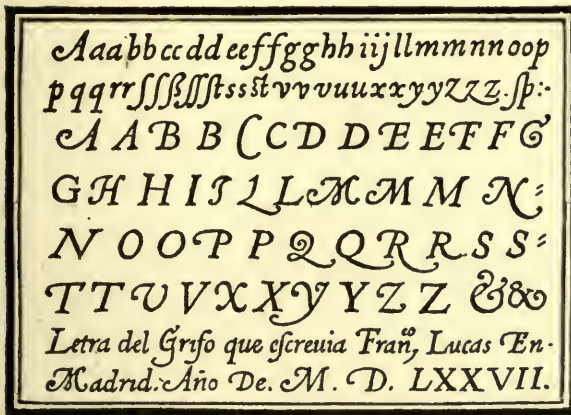 Aaabbccddeeffgghhiijllmmnnoop
pqqrrſſſßſſſtssstvvvuuxxyyzzz.ſp:-
A A B B C C D D E E F F G
G H H I I L L M M M N:
N O O P P Q Q R R S S:
T T V V X X Y Y Z Z & &
Letra del Grifo que eſcreuia Franco, Lucas En-
Madrid. Año De. M. D. LXXVII.